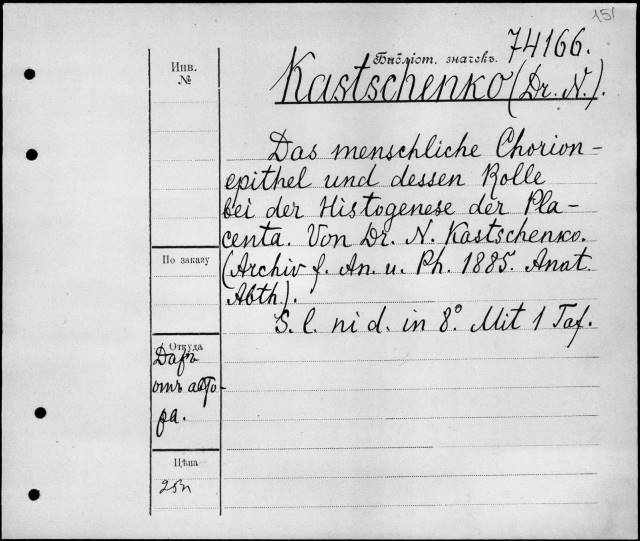 151
74166.
Библіот. значекъ.
Инв.
№
Kastschenko (Dr. N.).
Das menschliche Chorion-
epithel und dessen Rolle
bei der Histogenese der Pla-
centa. Von Dr. N. Kastschenko.
(Archiv f. An. u. Ph. 1885. Anat.
Abth.).
S. l. ni d. in 8°. Mit 1 Taf.
По заказу
Откуда
Даръ
отъ авто-
ра.
Цѣна